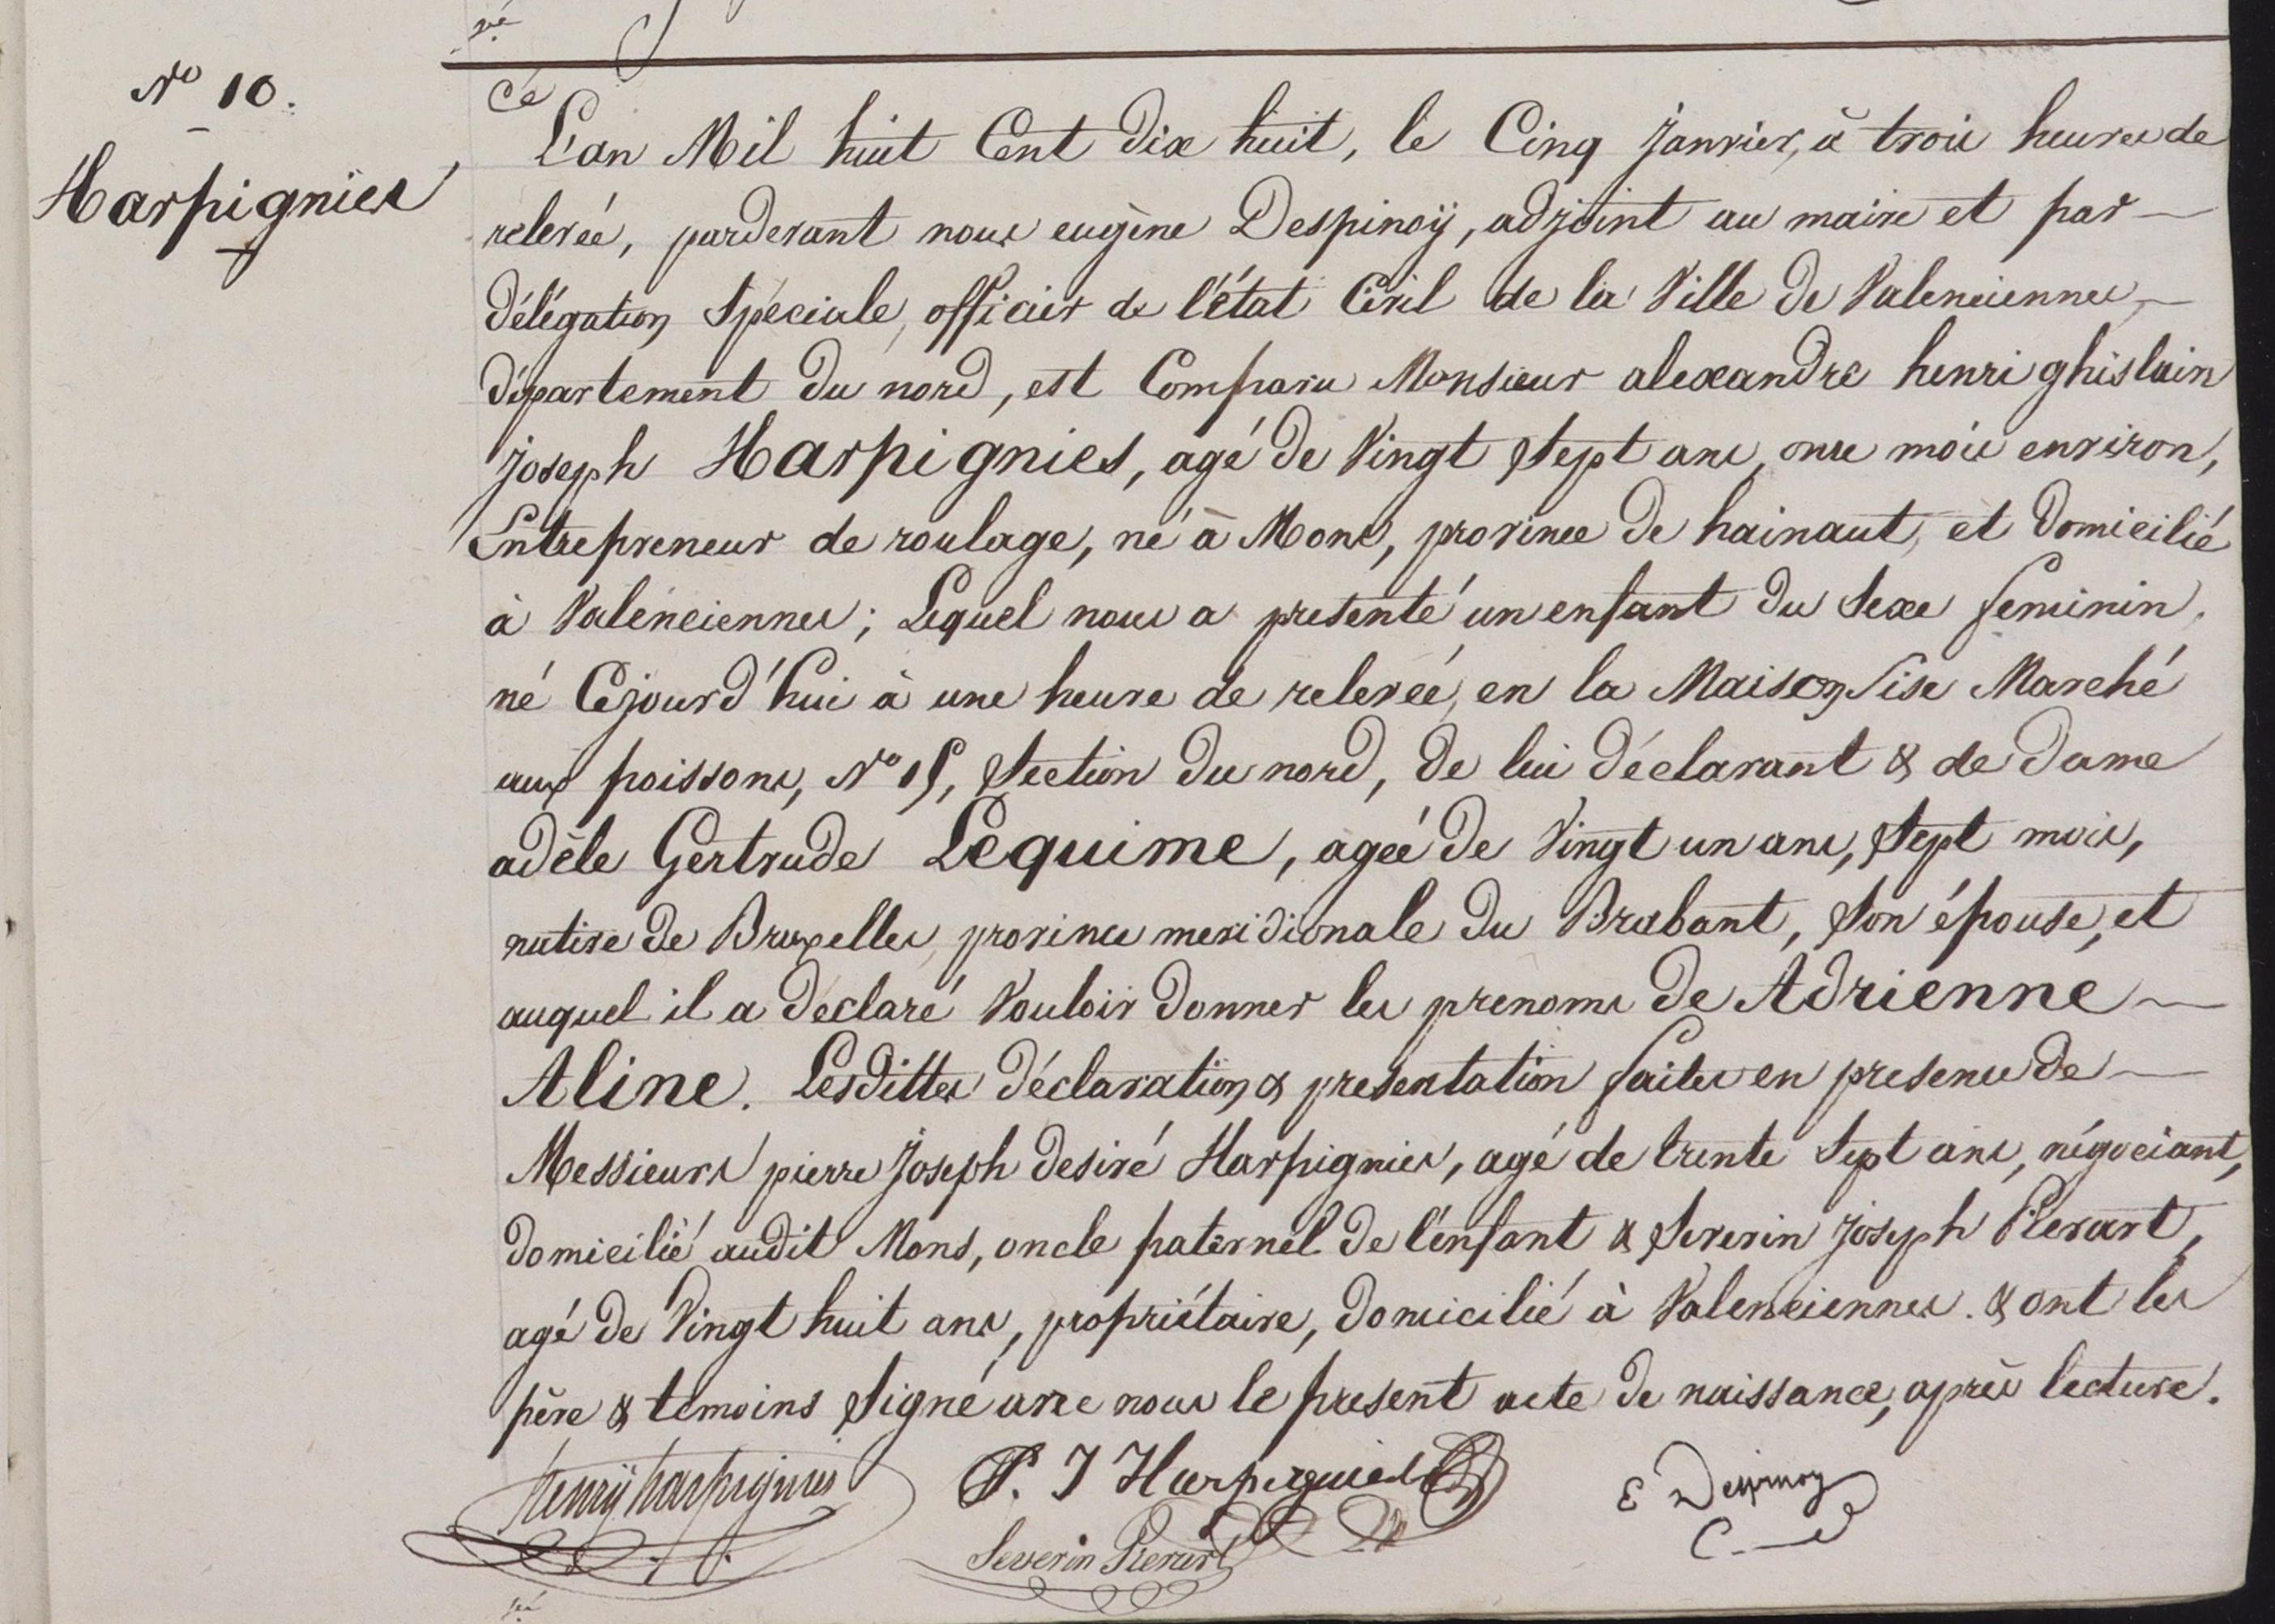 N° 10.
Harpignies
L'an Mil huit Cent dix huit, le Cinq Janvier, à trois heures de
relevée, pardevant nous eugène Despinoÿ, adjoint au maire et par
délégation Spéciale, officier de l'état Civil de la Ville de Valenciennes,
département du nord, est Comparu Monsieur alexandre henri ghislain
Joseph Harpignies, agé de Vingt Sept ans, onze mois environ,
Entrepreneur de roulage, né à Mons, province de hainaut, et domicilié
à Valenciennes ; Lequel nous a presenté un enfant du Sexe feminin,
né Cejourd'hui à une heure de relevée, en la Maison Sise Marché
aux poissons, N° 15, Section du nord, de lui déclarant & de dame
adèle Gertrude Lequime, agée de Vingt un ans, Sept mois,
native de Bruxelles, province meridionale du Brabant, Son épouse, et
auquel il a déclaré Vouloir donner les prenoms de Adrienne
Aline. Lesdittes déclaration & presentation faites en presence de
Messieurs pierre Joseph desiré Harpignies, agé de trente Sept ans, négociant,
domicilié audit Mons, oncle paternel de l'enfant & Severin Joseph Pierart,
agé de Vingt huit ans, propriétaire, domicilié à Valenciennes. & ont les
père & temoins Signé avec nous le present acte de naissance, après lecture.
henrÿ harpignies P. J Harpignies E Despinoy
Severin Pierart